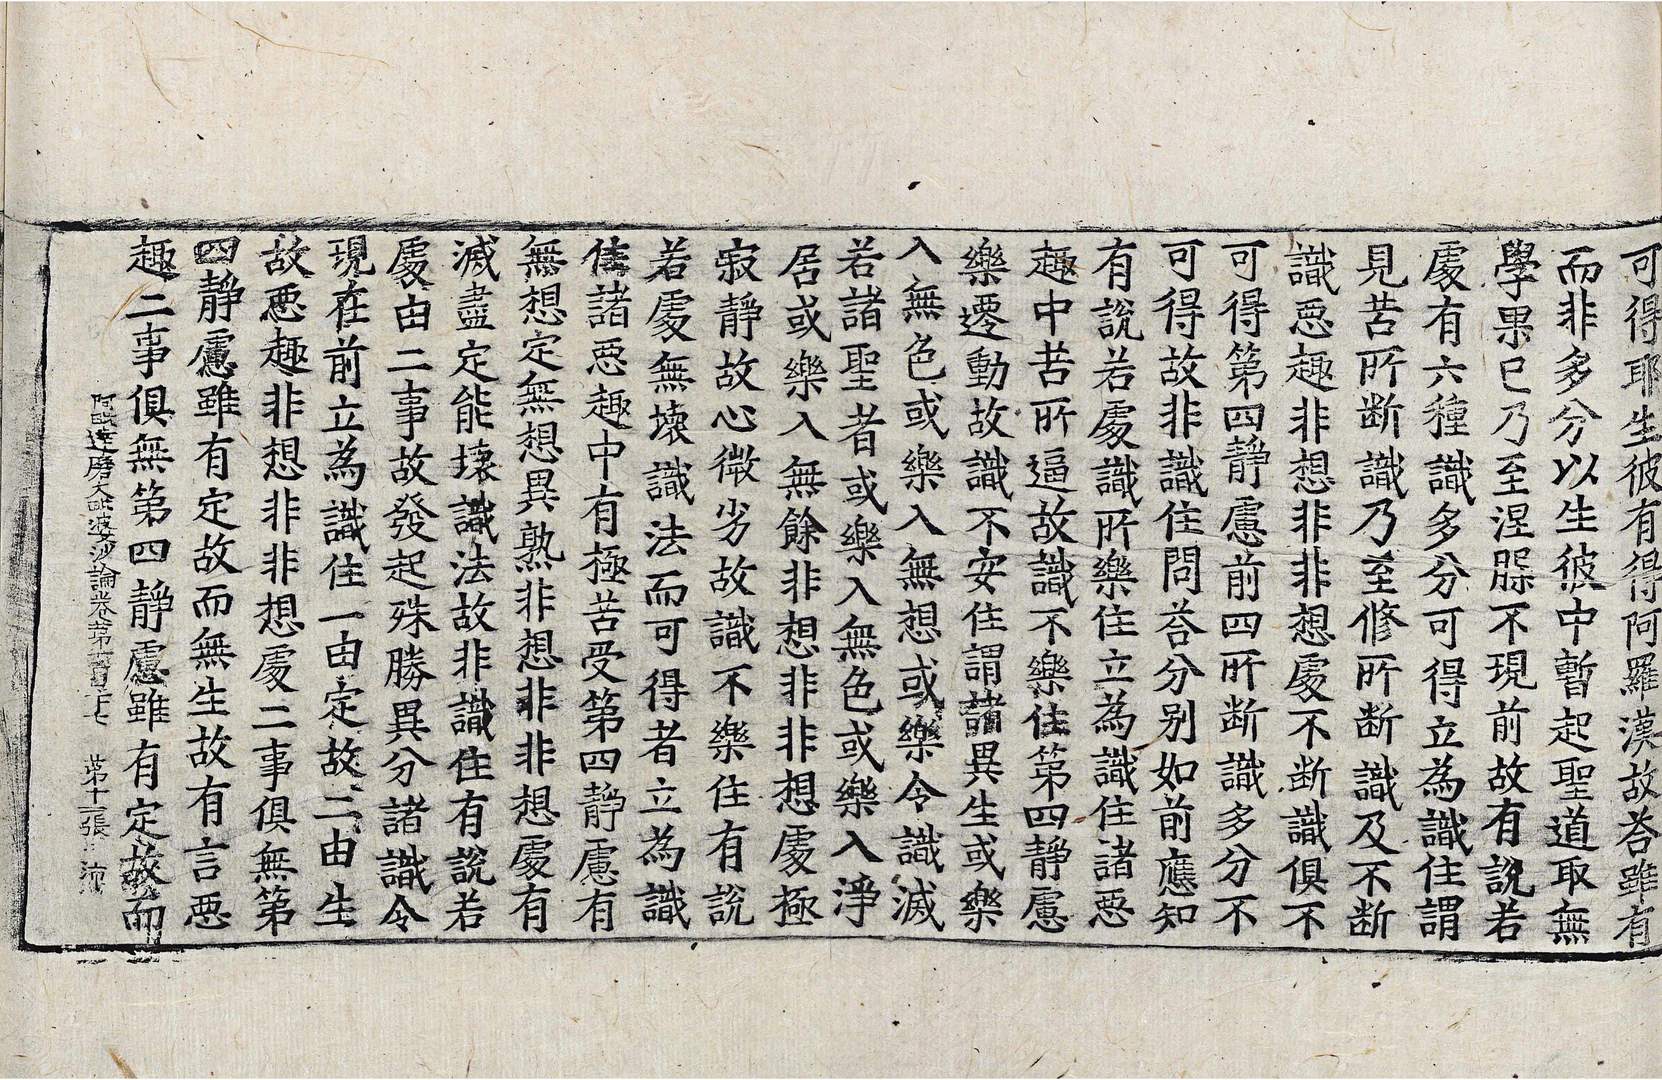 可得耶生彼有得阿羅漢故荅雖有
而非多分以生彼中暫起聖道取無
學果已乃至涅槃不現前故有說若
處有六種識多分可得立為識住謂
見苦所斷識乃至修所斷識及不斷
識惡趣非想非非想處不斷識俱不
可得第四靜慮前四所斷識多分不
可得故非識住問荅分別如前應知
有說若處識所樂住立為識住諸惡
趣中苦所逼故識不樂住第四靜慮
樂遷動故識不安住謂諸異生或樂
入無色或樂入無想或樂令識滅
若諸聖者或樂入無色或樂入淨
居或樂入無餘非想非非想處極
寂靜故心微劣故識不樂住有說
若處無壞識法而可得者立為識
住諸惡趣中有極苦受第四靜慮有
無想定無想異熟非想非非想處有
滅盡定能壞識法故非識住有說若
處由二事故發起殊勝異分諸識令
現在前立為識住一由定故二由生
故惡趣非想非非想處二事俱無第
四靜慮雖有定故而無生故有言惡
趣二事俱無第四靜慮雖有定故而
阿毗達磨大毗婆沙論卷第一百三十七 第十二張